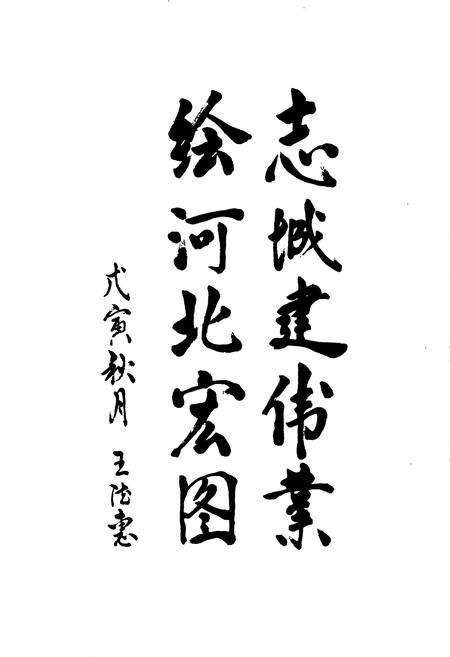 志城建伟业
绘河北宏图
戊寅秋月 王 惠